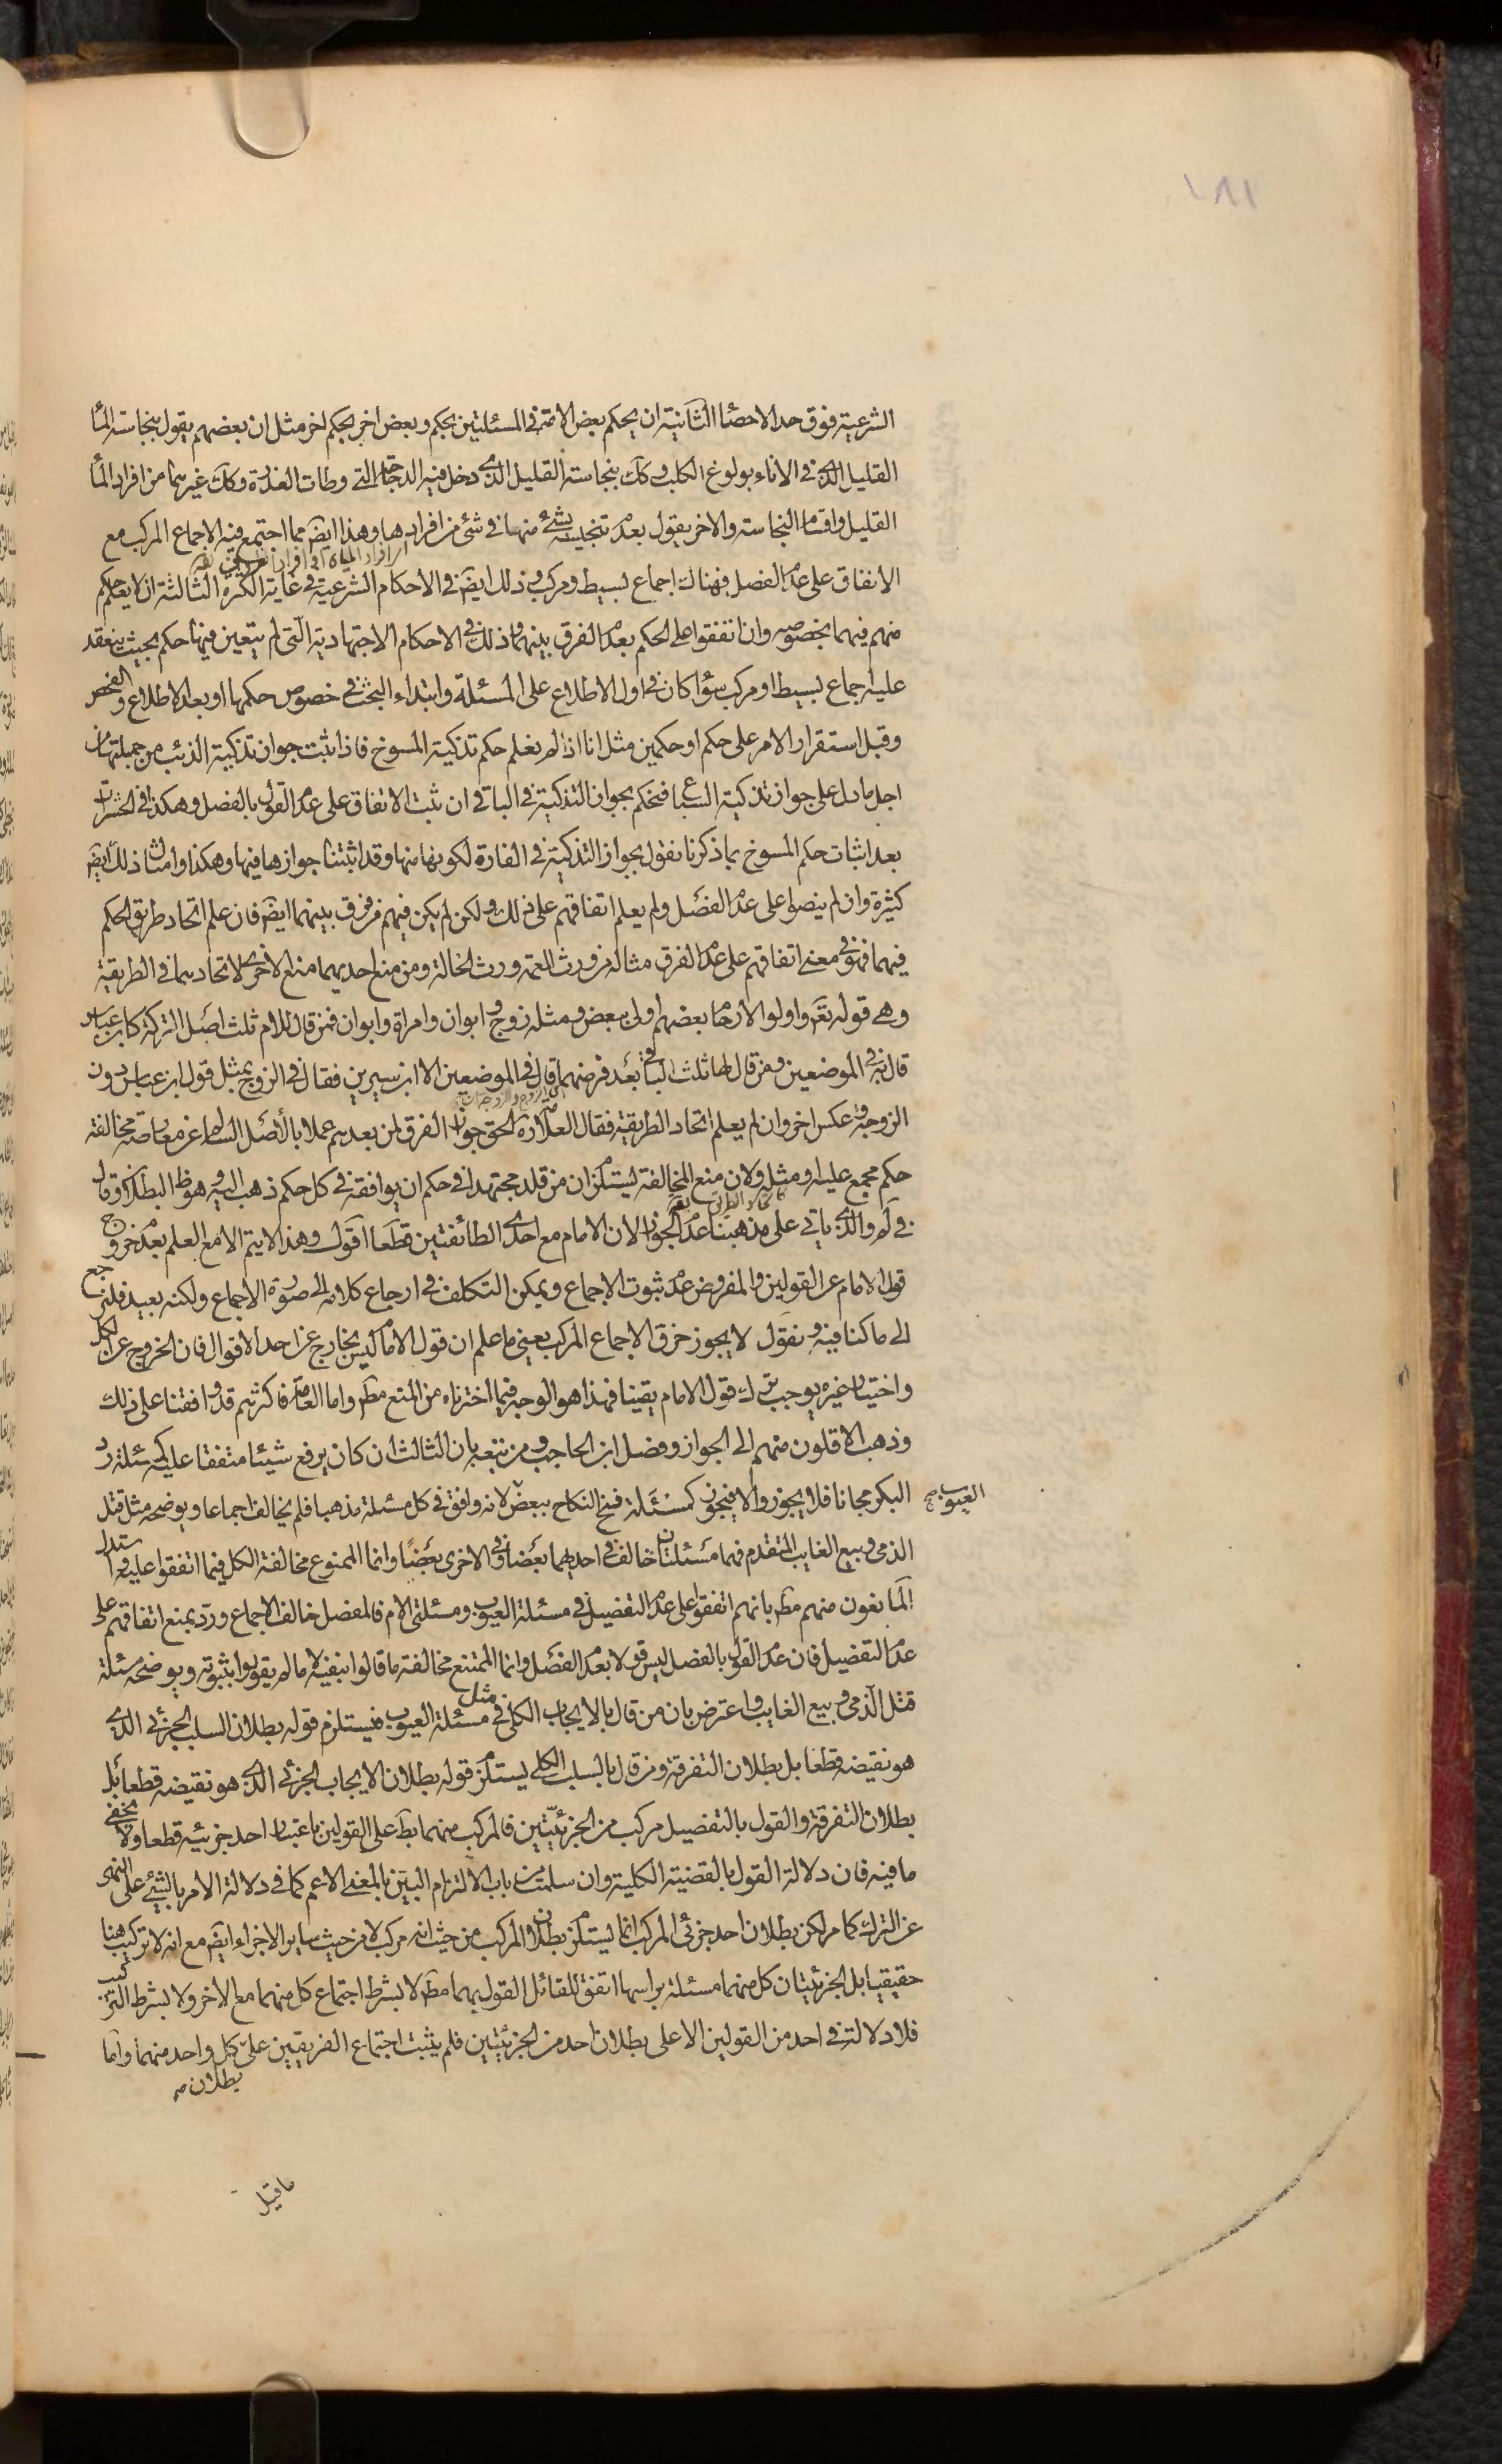 ١٨١
الشرعية فوق حد الاحصاء الثانية ان يحكم بعض الامة فى المسئلتين بحكم وبعض اخر بحكم اخر مثل ان بعضهم يقول بنجاسة الماء
القليل الذى فى الاناء بولوغ الكلب وكك بنجاسة القليل الذى دخل فيه الدجاجة التى وطات العذرة وكك غيرهما من افراد الماء
القليل واقسام النجاسة والاخر يقول بعدم تنجيسه بشئ منها فى شئ من افرادها وهذا ايضا مما اجتمع فيه الاجماع المركب مع
الاتفاق على عدم الفصل فهناك اجماع بسيط ومركب وذلك ايضا فى الاحكام الشرعية فى غاية الكثرة الثالثة ان لا يعلم حكم
منهم فيهما بخصوصه وان اتفقوا على الحكم بعدم الفرق بينهما وذلك فى الاحكام الاجتهادية التى لم يتعين فيها حكم بحيث ينعقد
عليه اجماع بسيط او مركب سواء كان فى اول الاطلاع على المسئلة وابتداء البحث فى خصوص حكمها او بعد الاطلاع والفحص
وقبل استقرار الامر على حكم او حكمين مثل انا اذا لم نعلم حكم تذكية المسوخ فاذا ثبت جواز تذكية الذئب من جملتها من
اجل ما دل على جواز تذكية السباع فنحكم بجواز التذكية فى الباقى ان ثبت الاتفاق على عدم القول بالفصل وهكذا فى الحشرات
بعد اثبات حكم المسوخ بما ذكرنا نقول بجواز التذكية فى الفارة لكونها منها وقد اثبتنا جوازها فيها وهكذا وامثال ذلك ايضا
كثيرة وان لم ينصوا على عدم الفصل ولم يعلم اتفاقهم على ذلك ولكن لم يكن فيهم من فرق بينهما ايضا فان علم اتحاد طريق الحكم
فيهما فهو فى معنى اتفاقهم على عدم الفرق مثاله من ورث العمة ورث الخالة ومن منع احديهما منع الاخرى لاتحادهما فى الطريقة
وهى قوله تعالى واولوا الارحام بعضهم اولى ببعض ومثله زوج وابوان وامراة وابوان فمن قال للام ثلث اصل التركة كابن عباس
قال به فى الموضعين ومن قال لها ثلث الباقى بعد فرضهما قال فى الموضعين الا ابن سيرين فقال فى الزوج بمثل قول ابن عباس دون
الزوجة وعكس اخر وان لم يعلم اتحاد الطريقة فقال العلامة ره الحق جواز الفرق لمن بعدهم عملا بالأصل السالم عن معارضة مخالفة
حكم مجمع عليه او مثله ولان منع المخالفة يستلزم ان من قلد مجتهدا فى حكم ان يوافقه فى كل حكم ذهب اليه وهو ظ البطلان وقال
فى لم والذى ياتى على مذهبنا عدم الجواز لان الامام مع احدى الطائفتين قطعا اقول وهذا لا يتم الا مع العلم بعدم خروج
قول الامام عن القولين والمفروض عدم ثبوت الاجماع ويمكن التكلف فى ارجاع كلامه الى صورة الاجماع ولكنه بعيد فلنرجع
الى ما كنا فيه ونقول لا يجوز خرق الاجماع المركب يعنى ما علم ان قول الامام ليس بخارج عن احد الاقوال فان الخروج عن الكل
واختيار غيره يوجب ترك قول الامام يقينا فهذا هو الوجه فيما اخترناه من المنع مط واما العامة فاكثرهم قد وافقنا على ذلك
وذهب الاقلون منهم الى الجواز وفصل ابن الحاجب ومن تبعه بان الثالث ان كان يرفع شيئا متفقا عليه كمسئلة رد
البكر مجانا فلا يجوز والا فيجوز كمسئلة فسخ النكاح ببعض لانه وافق فى كل مسئلة مذهبا فلم يخالف اجماعا ويوضحه مثل قتل
العيوب صح
الذمى وبيع الغايب المتقدم فهما مسئلتان خالف فى احديهما بعضا وفى الاخرى بعضا وانما الممنوع مخالفة الكل فيما اتفقوا عليه واستدل
المانعون منهم مط بانهم اتفقوا على عدم التفصيل فى مسئلة العيوب ومسئلتى الام فالمفصل خالف الاجماع ورد بمنع اتفاقهم على
عدم التفصيل فان عدم القول بالفصل ليس قولا بعدم الفصل وانما الممتنع مخالفة ما قالوا بنفيه لا ما لم يقولوا بثبوته ويوضحه مسئلة
قتل الذمى وبيع الغايب واعترض بان من قال بالايجاب الكلى فى مثل مسئلة العيوب فيستلزم قوله بطلان السلب الجزئى الذى
هو نقيضه قطعا بل بطلان التفرقة ومن قال بالسلب الكلى يستلزم قوله بطلان الايجاب الجزئى الذى هو نقيضه قطعا بل
بطلان التفرقة والقول بالتفصيل مركب من الجزئيتين فالمركب منهما بط على القولين باعتبار احد جزئيه قطعا ولا يخفى
ما فيه فان دلالة القول بالقضية الكلية وان سلمت من باب الالتزام البين بالمعنى الاعم كما فى دلالة الامر بالشئ على النهى
عن الترك كما مر لكن بطلان احد جزئى المركب انما يستلزم بطلان المركب من حيث انه مركب لا من حيث ساير الاجزاء ايضا مع انه لا تركيب هنا
حقيقيا بل الجزئيتان كل منهما مسئلة براسها اتفق للقائل القول بهما مط لا بشرط اجتماع كل منهما مع الاخر ولا بشرط التركيب
فلا دلالة فى احد من القولين الا على بطلان احد من الجزئيتين فلم يثبت اجتماع الفريقين على كل واحد منهما واما
بطلان صح
ما قيل